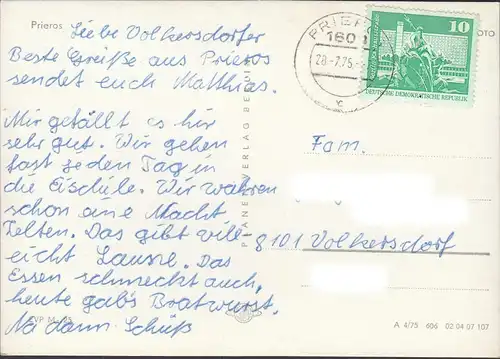 Prieros
Liebe Volkersdorfer
Beste Grüße aus Prieros
sendet euch Matthias.
Mir gefällt es hir
sehr gut. Wir gehen
fast jeden Tag in
die Eisdiele. Wir wahren
schon eine Nacht
Zelten. Das gibt vill-
eicht Laune. Das
Essen schmeckt auch,
heute gab's Bratwurst.
Na dann Schüß
PLANET-VERLAG BERLIN
PRIER
1601
28.-7.75.-
c
10
DEUTSCHE DEMOKRATISCHE REPUBLIK
OTO
Fam.
8101 Volkersdorf
EVP M -,25
A 4/75 606 02 04 07 107